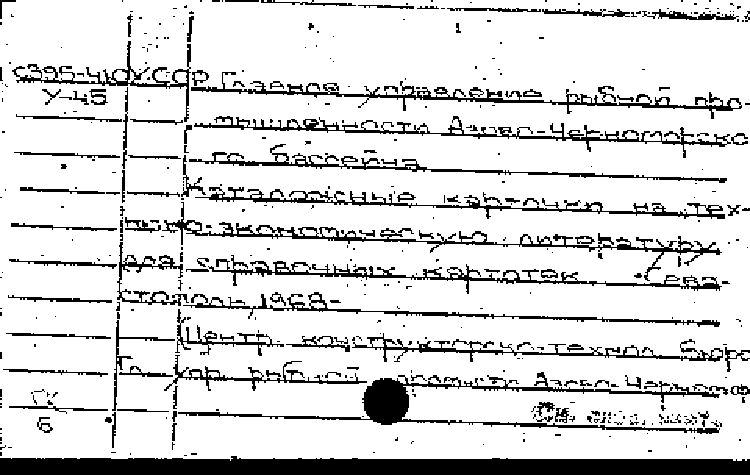 С395-410 У.ССР Главное управление рыбной про-
У-45
мышленности Азово-Черноморско-
го бассейна
Каталожные карточки на тех-
нико-экономическую литературу
для справочных картотек. Сева-
стополь, 1968-
(Центр. конструкторско-технол. бюро
Гл. упр. рыбной промышл. Азово-Черномор
ГК
б
См. след. карт.